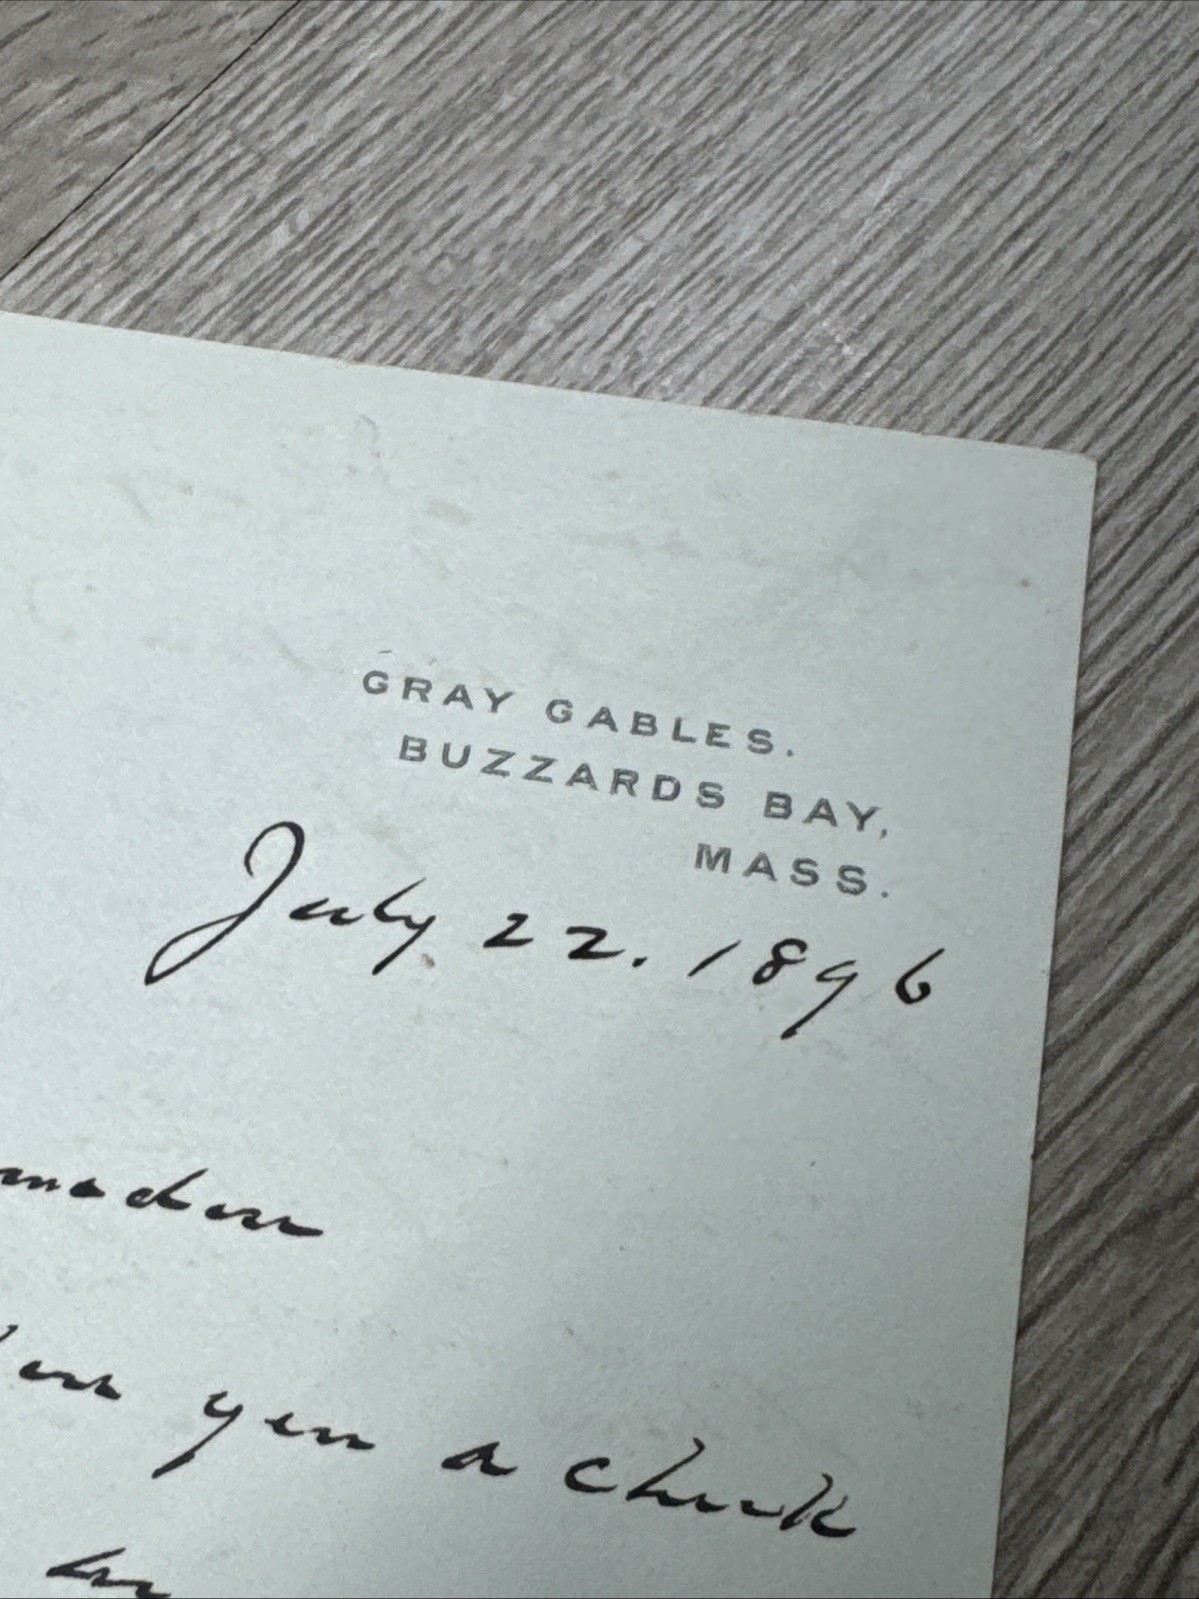 GRAY GABLES.
BUZZARDS BAY,
MASS.
July 22. 1896
you a check